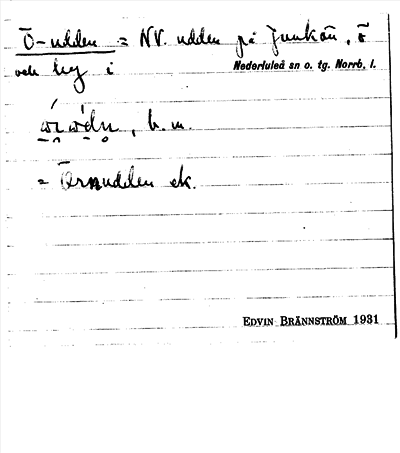 Ö-udden = NV. udden på Junkön, ö
och hg i Nederluleå sn o. tg. Norrb. l.
b. m.
= Örnudden ek.
EDVIN BRÄNNSTRÖM 1931